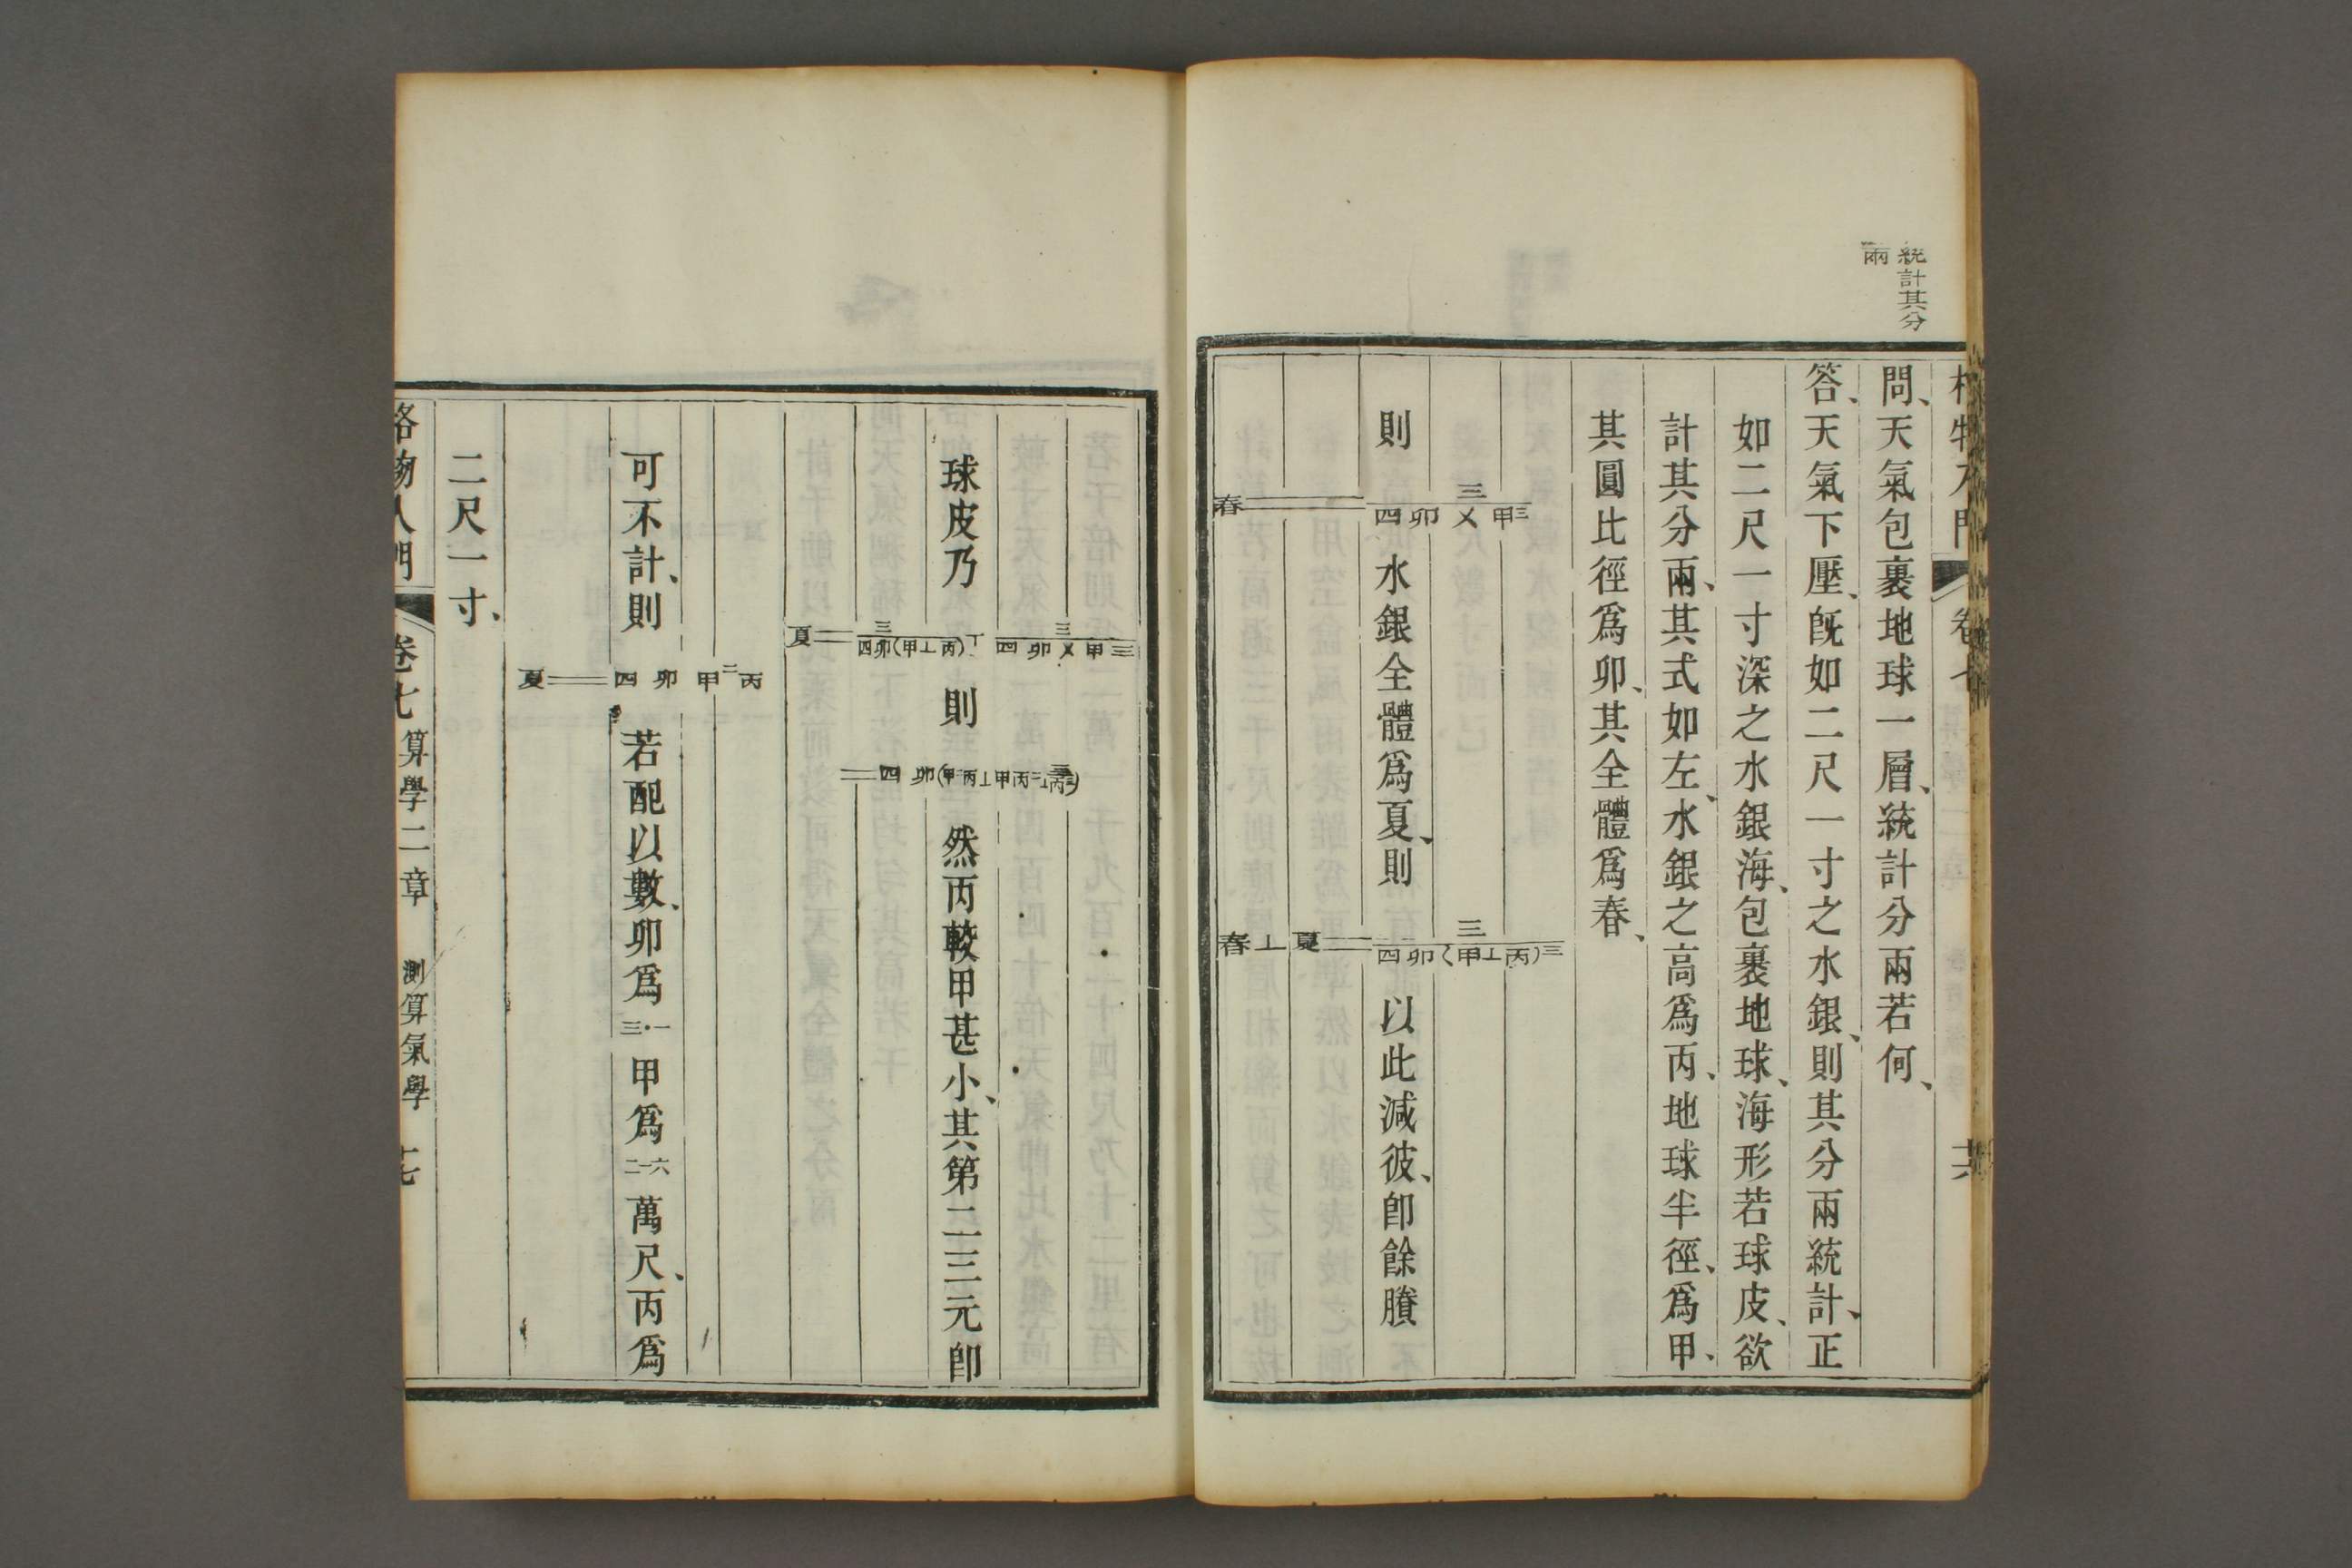 統計其分
兩
格物入門 卷七
問、天氣包裹地球一層、統計分兩若何、
答、天氣下壓、旣如二尺一寸之水銀、則其分兩統計、正
如二尺一寸深之水銀海、包裹地球、海形若球皮、欲
計其分兩、其式如左、水銀之高爲丙、地球半徑、爲甲、
其圓比徑爲卯、其全體爲春、
則
三
四卯乂甲三
春
水銀全體爲夏、則
三
四卯(甲⊥丙)三
夏⊥春
以此減彼、卽餘賸
球皮乃
三
四卯乂甲三
三
四卯(甲⊥丙)
夏
則
四卯
然丙較甲甚小、其第二三元卽
可不計、則
四卯甲二丙
夏
若配以數、卯爲
三·一
甲爲
二一六
萬尺、丙爲
二尺一寸、
格物入門 卷七 算學二章 測算氣學 十七